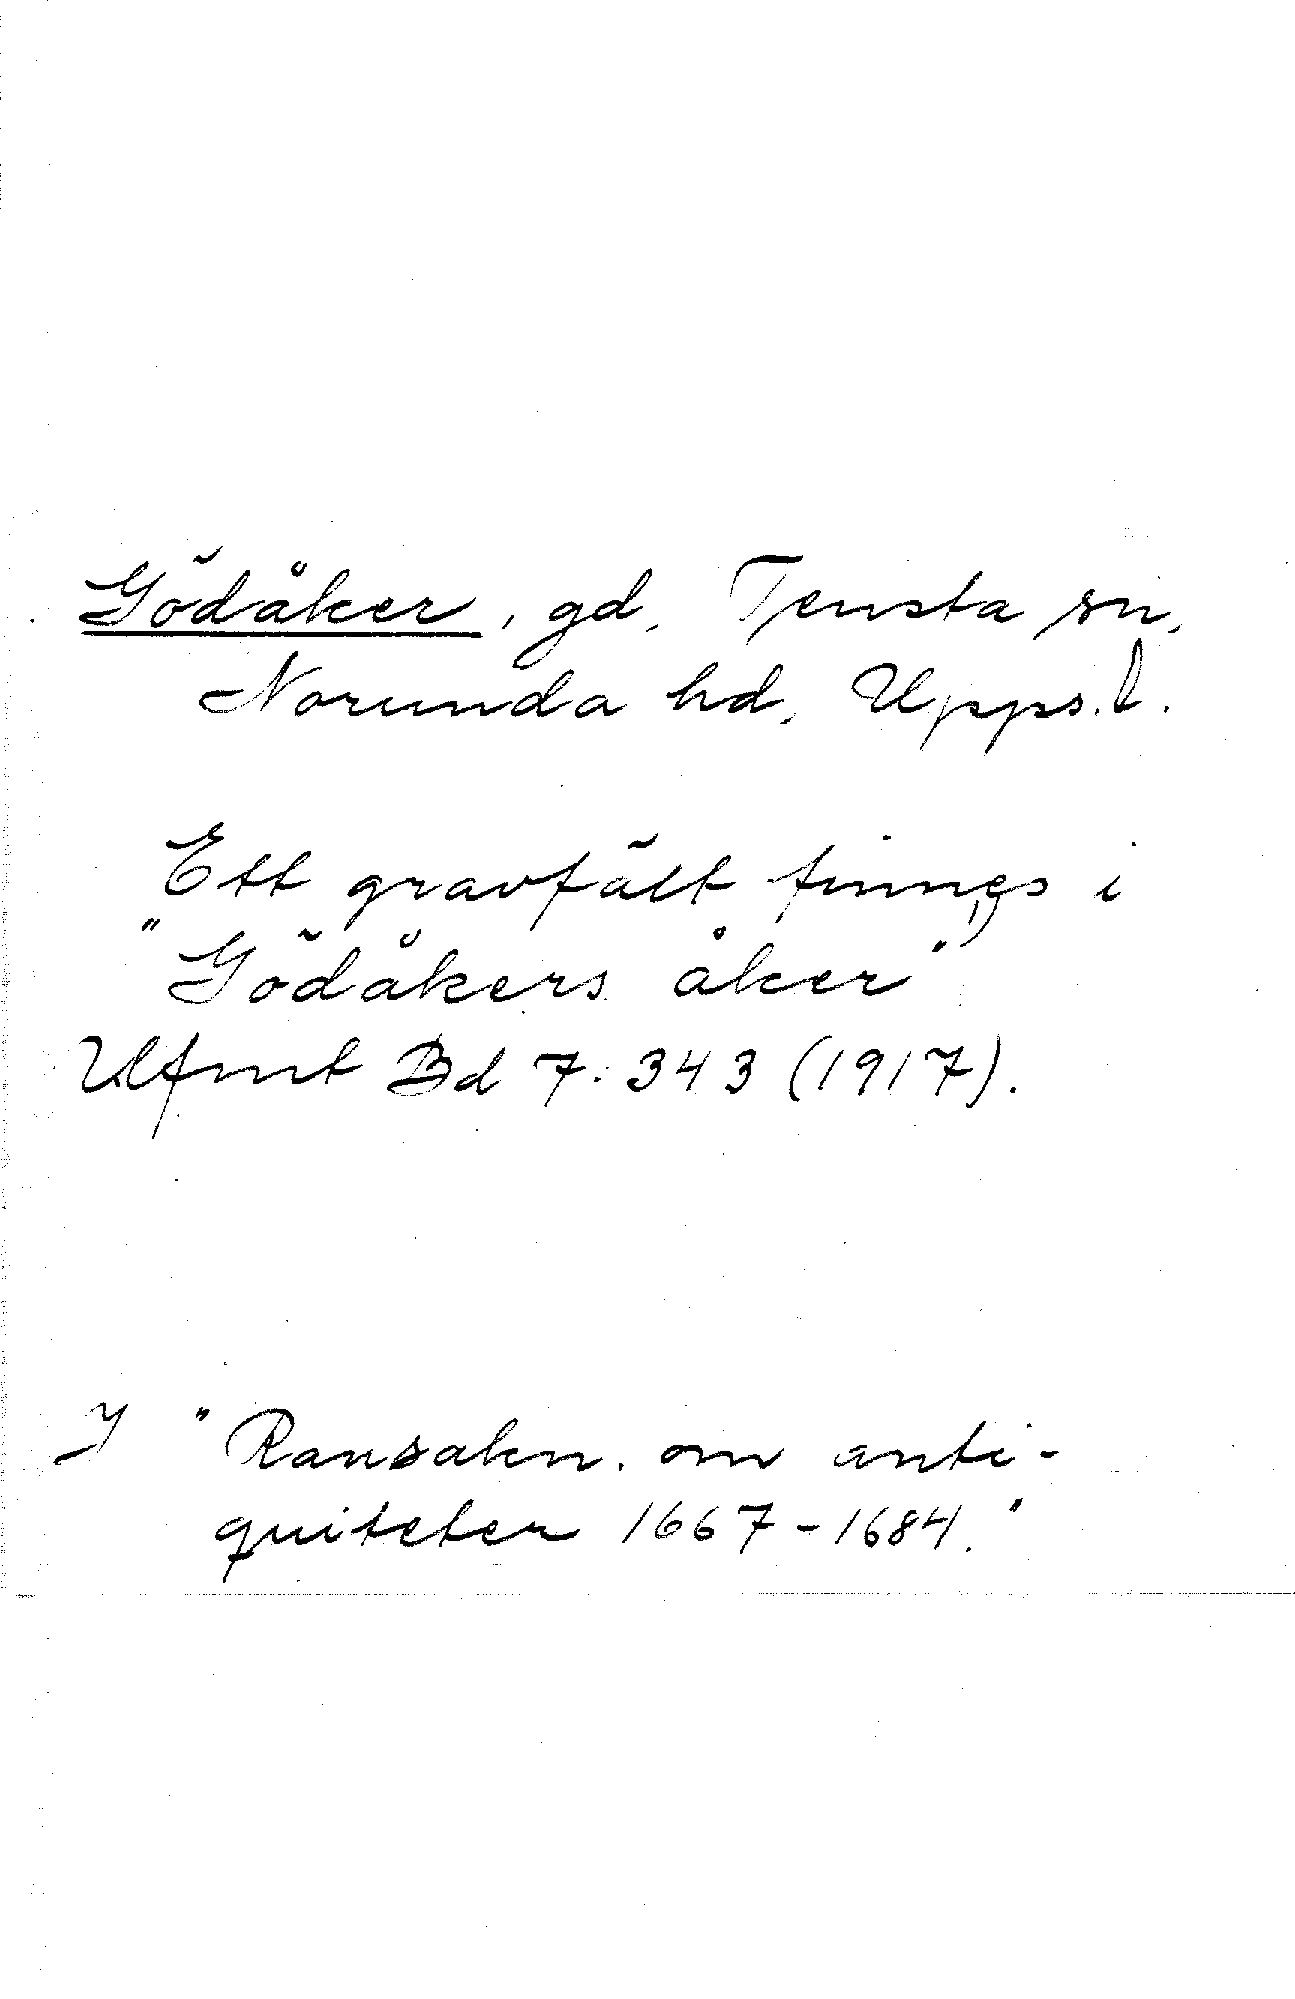 Gödåker, gd, Tensta sn,
Norunda hd, Upps.l.
Ett gravfält finnes i
"Gödåkers åker"
Ulfmt Bd 7: 343 (1917).
I "Ransakn. om anti-
quiteter 1667-1684."